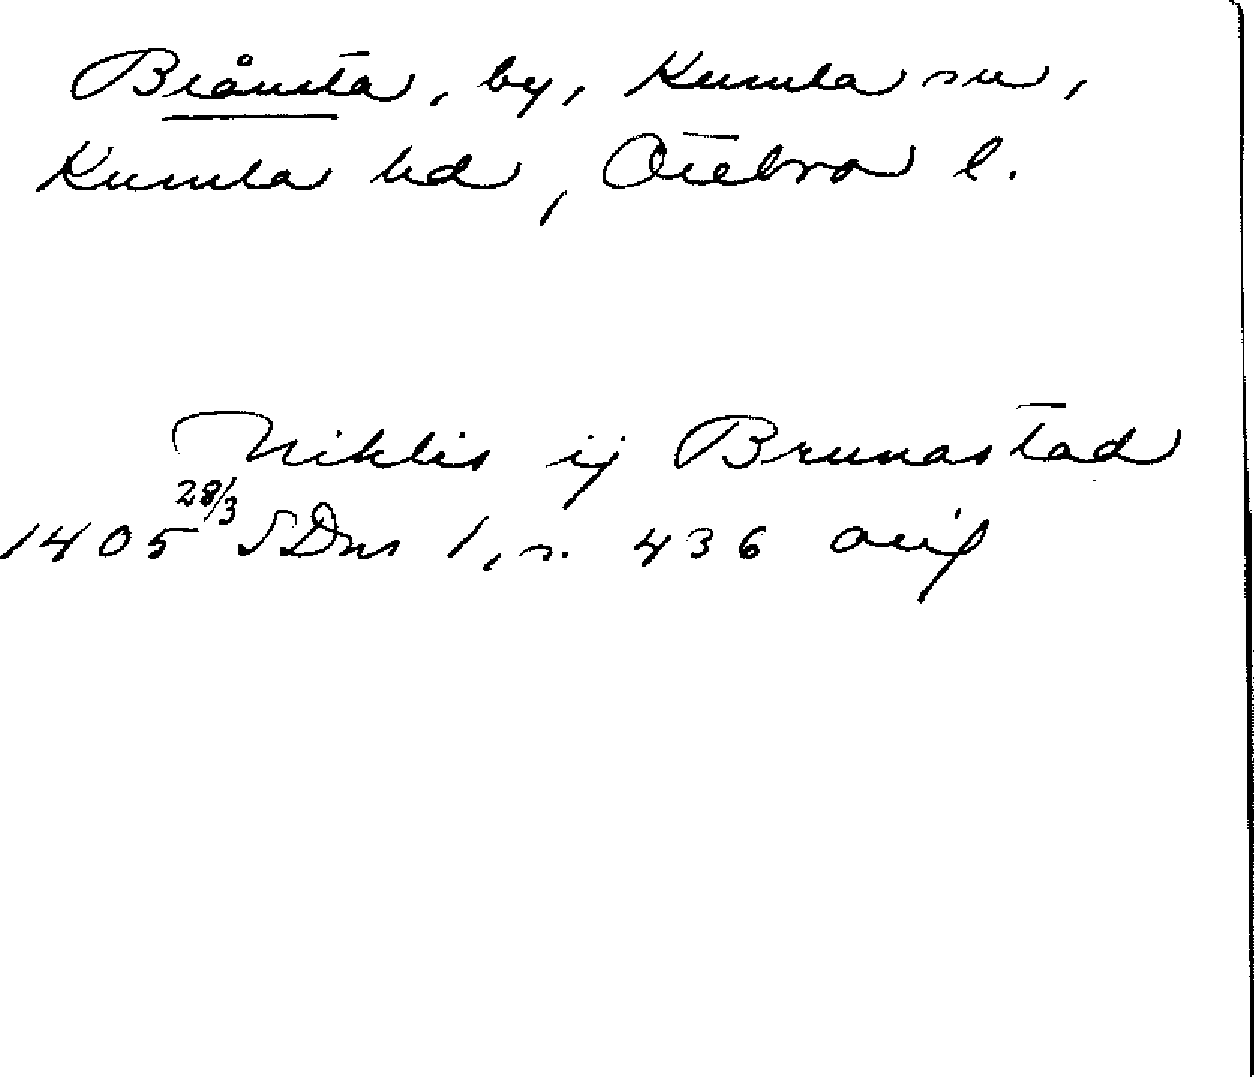 Brånsta, by, Kumla sn,
Kumla hd, Örebro l.
Niklis ij Brunastad
1405 28/3 SDns 1, s. 436 orig